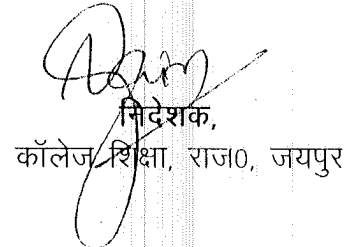 निदेशक,
कॉलेज शिक्षा, राज0, जयपुर